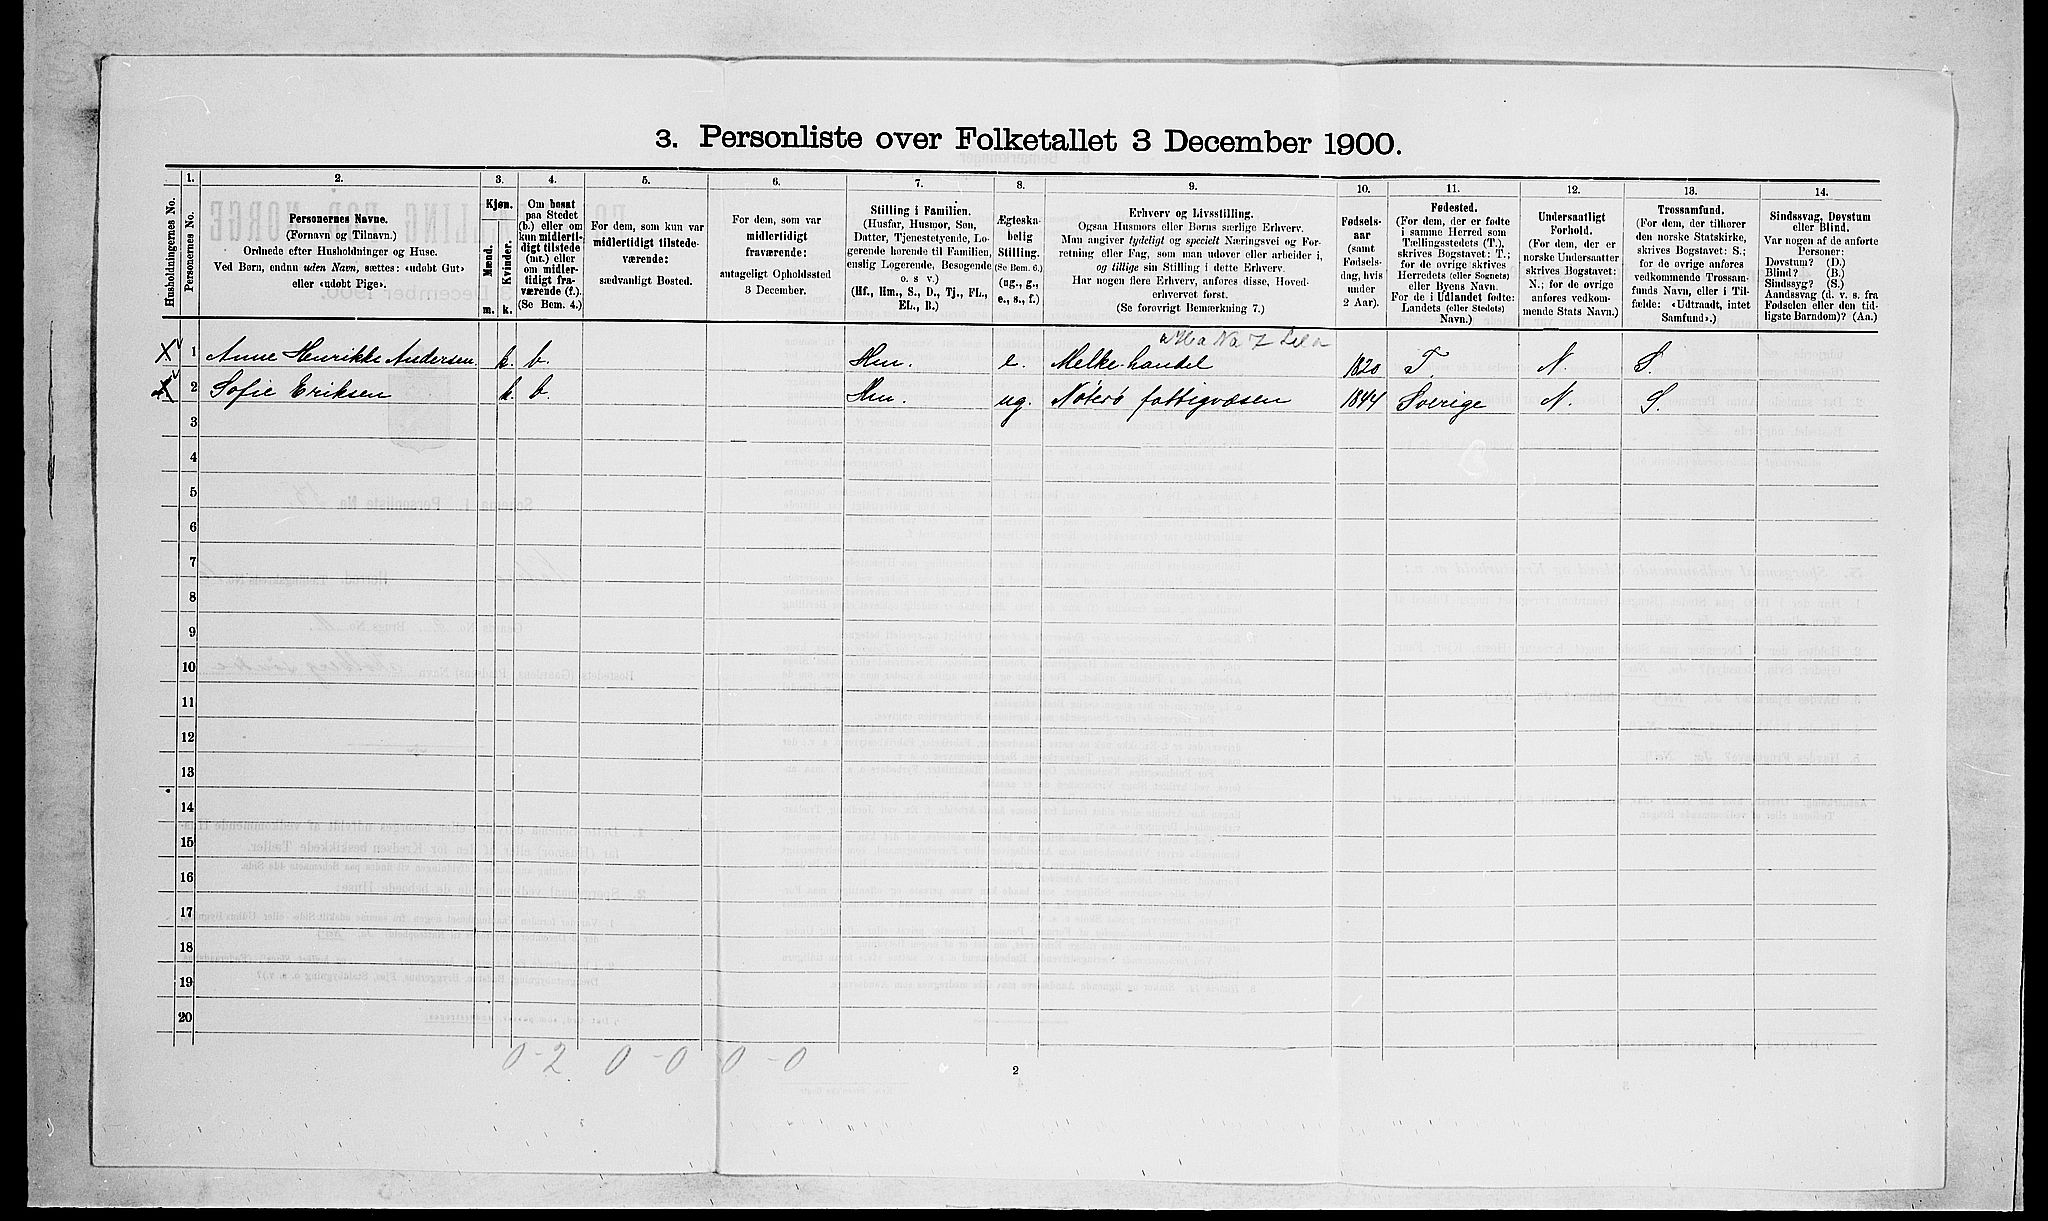 3. Personliste over Folketallet 3 December 1900.
Husholdningernes No.
1.
Personernes No.
2.
Personernes Navne.
(Fornavn og Tilnavn.)
Ordnede efter Husholdninger og Huse.
Ved Børn, endnu uden Navn, sættes: «udøbt Gut»
eller «udøbt Pige».
3.
Kjøn.
Mænd.
Kvinder.
m.
k.
4.
Om bosat
paa Stedet
(b.) eller om
kun midlerti-
digt tilstede
(mt.) eller
om midler-
tidigt fra-
værende (f.).
(Se Bem. 4.)
5.
For dem, som kun var
midlertidigt tilstede-
værende:
sædvanligt Bosted.
6.
For dem, som var
midlertidigt
fraværende:
antageligt Opholdssted
3 December.
7.
Stilling i Familien.
(Husfar, Husmor, Søn,
Datter, Tjenestetyende, Lo-
gerende hørende til Familien,
enslig Logerende, Besøgende
o. s v.)
(Hf., Hm., S., D., Tj., FL.,
EL., B.)
8.
Ægteska-
belig
Stilling.
(Se Bem. 6.)
(ug., g.,
e., s., f.)
9.
Erhverv og Livsstilling.
Ogsaa Husmors eller Børns særlige Erhverv.
Man angiver tydeligt og specielt Næringsvei og For-
retning eller Fag, som man udøver eller arbeider i,
og tillige sin Stilling i dette Erhverv.
Har nogen flere Erhverv, anføres disse, Hoved-
erhvervet først.
(Se forøvrigt Bemærkning 7.)
10.
Fødsels-
aar
(samt
Fødsels-
dag, hvis
under
2 Aar).
11.
Fødested.
(For dem, der er fødte
i samme Herred som
Tællingsstedets (T.),
skrives Bogstavet: T.;
for de øvrige skrives
Herredets (eller Sognets)
eller Byens Navn.
For de i Udlandet fødte:
Landets (eller Stedets)
Navn.)
12.
Undersaatligt
Forhold.
(For dem, der er
norske Undersaatter
skrives Bogstavet:
N.; for de øvrige
anføres vedkom-
mende Stats Navn.)
13.
Trossamfund.
(For dem, der tilhører
den norske Statskirke,
skrives Bogstavet: S.;
for de øvrige anføres
vedkommende Trossam-
funds Navn, eller i Til-
fælde: «Udtraadt, intet
Samfund».)
14.
Sindssvag, Døvstum
eller Blind.
Var nogen af de anførte
Personer:
Døvstum? (D.)
Blind? (B.)
Sindssyg? (S.)
Aandssvag (d. v. s. fra
Fødselen eller den tid-
ligste Barndom)? (Aa.)
X 1 Anne Henrikke Andersen. k. b. Hm. e. Melke-handel 1820 T. N. S.
X 2 Sofie Eriksen k b. Hm. ug. Nøterø fattigvæsen 1844 Sverige N. S.
3
4
5
6
7
8
9
10
11
12
13
14
15
16
17
18
19
20
0 - 2 0 - 0 0 - 0
2